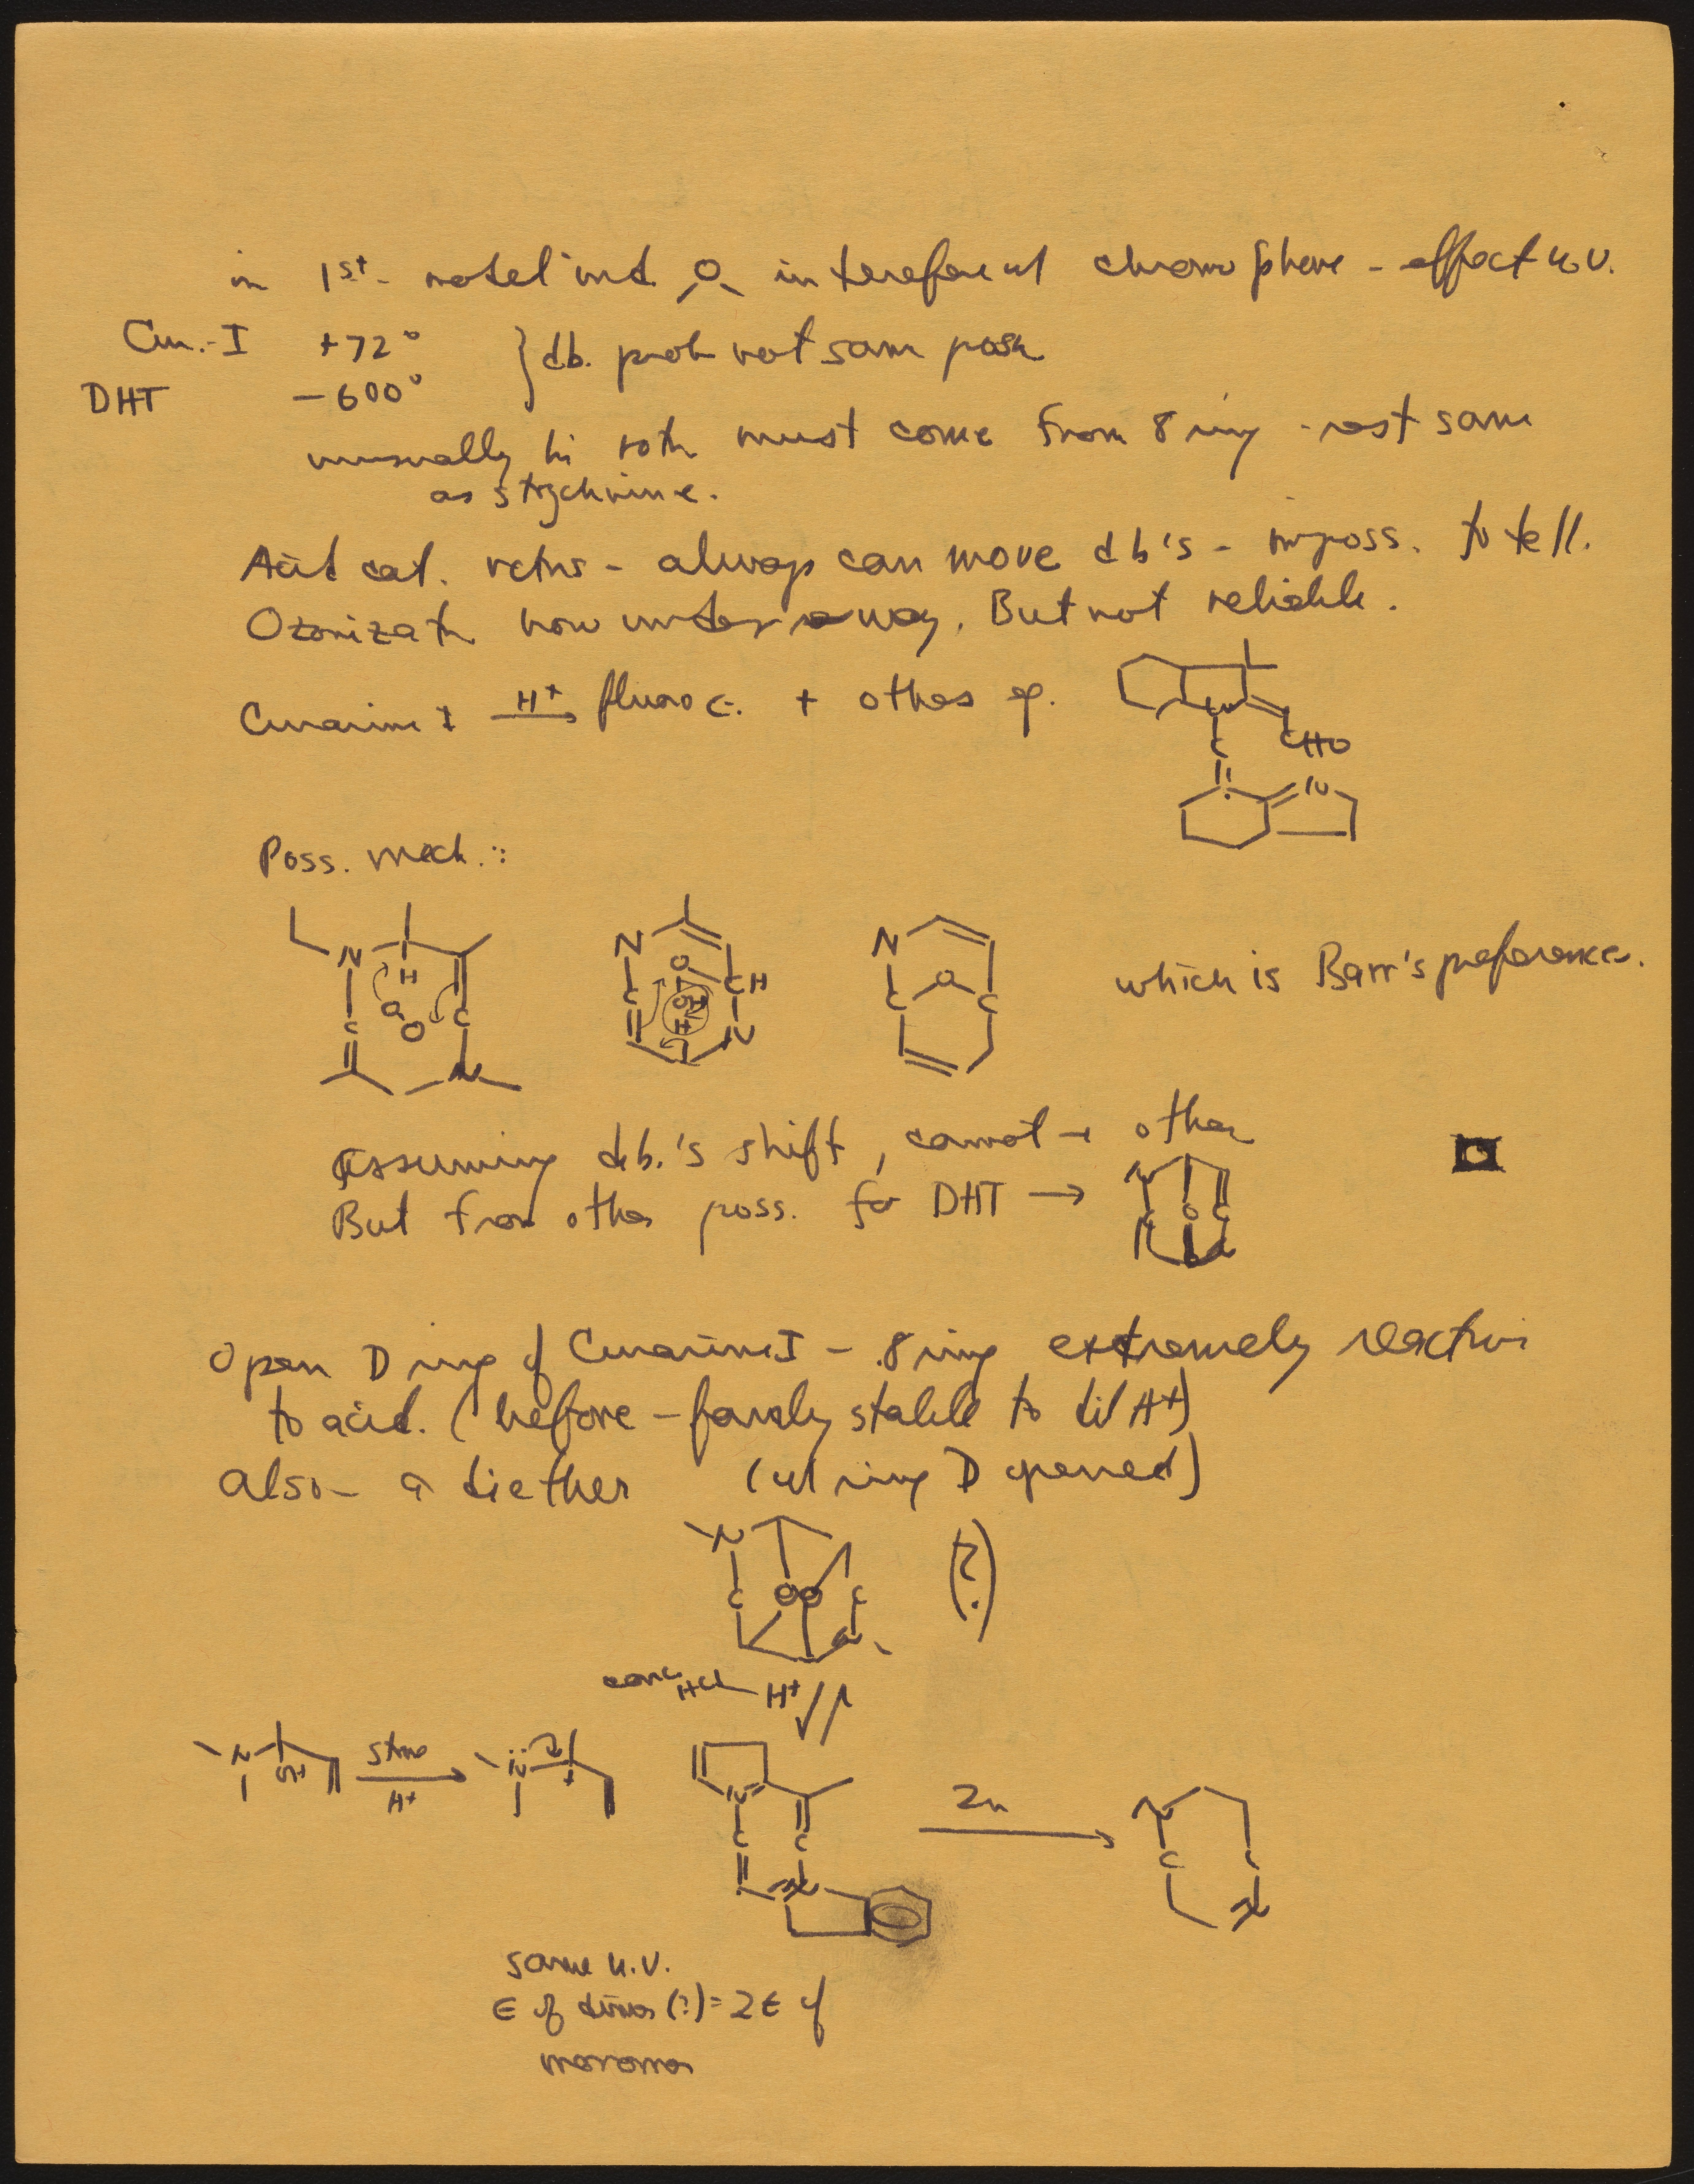 in 1st - O - chromophore - effect u.v.
Cur.-I +72°
DHT -600° } db. prob not same posn
unusually hi rotn must come from 8 ring - rest same
as strychnine.
Acid cat. rctns - always can move db's - imposs. to tell.
Ozonizatn now under way. But not reliable.
Curarine I H+ → fluoroc. + other
N
C
CHO
N
Poss. mech.:
N H O O C C N
N O C H C N H+ N
N O C C
which is Barr's preference.
Assuming d.b.'s shift, cannot → other
But from other poss. for DHT →
N C O C
Open D ring of Curarine I - 8 ring extremely reactive
to acid. (before - fairly stable to dil H+)
also - a diether (w/ ring D opened)
N C O O C N (?)
conc HCl H+
N OH strong H+ → N +
N C C N
Zn →
N C C N
same u.v.
ε of dimer (?) = 2ε of
monomer